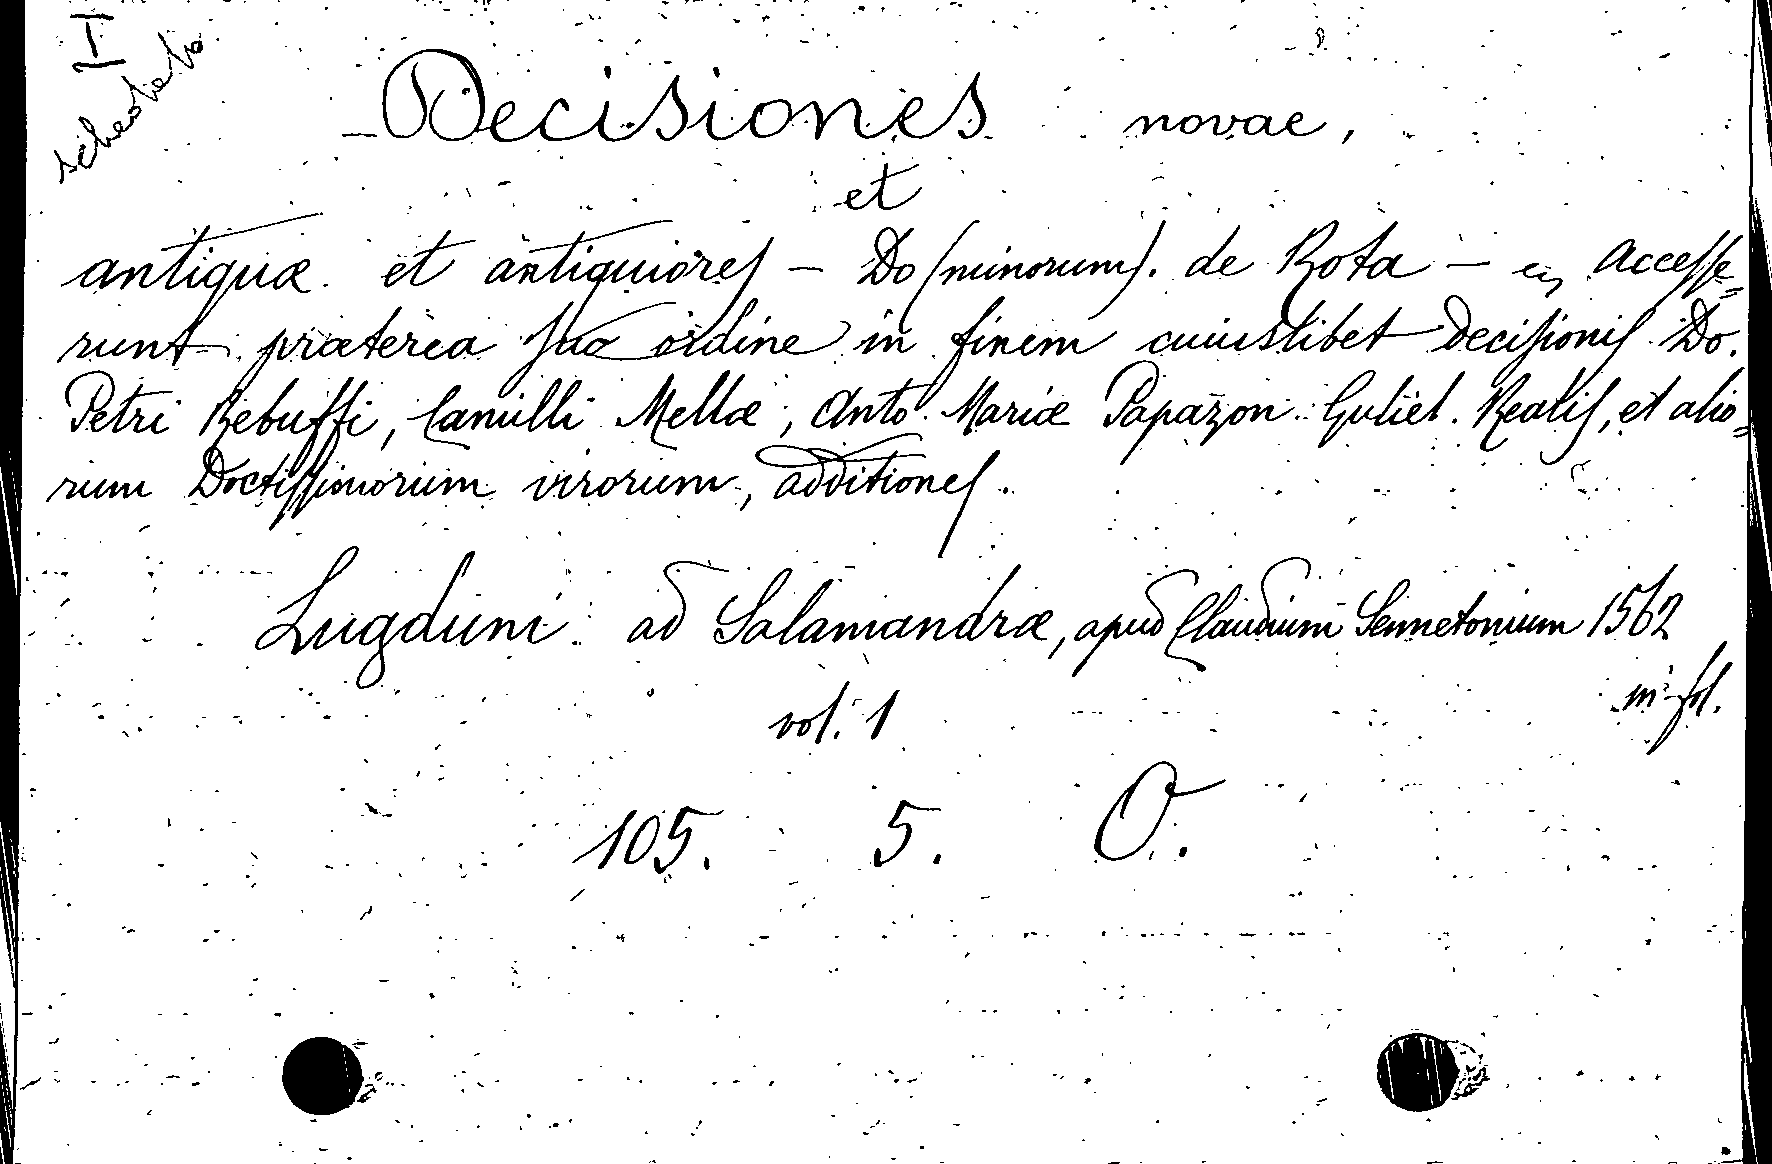 I
schedato
Decisiones novae,
et
antiquæ et antiquiores – Do(minorum). de Rota – Accesse=
runt præterea suo ordine in finem cuiuslibet Decisionis Do.
Petri Rebuffi, Camilli Mellæ, Anto. Mariæ Papazon. Guliel. Realis, et alio=
rum Doctissimorum virorum, additiones.
Lugduni ad Salamandræ, apud Claudium Sennetonium 1562
in-fol.
vol. 1
105. 5. O.